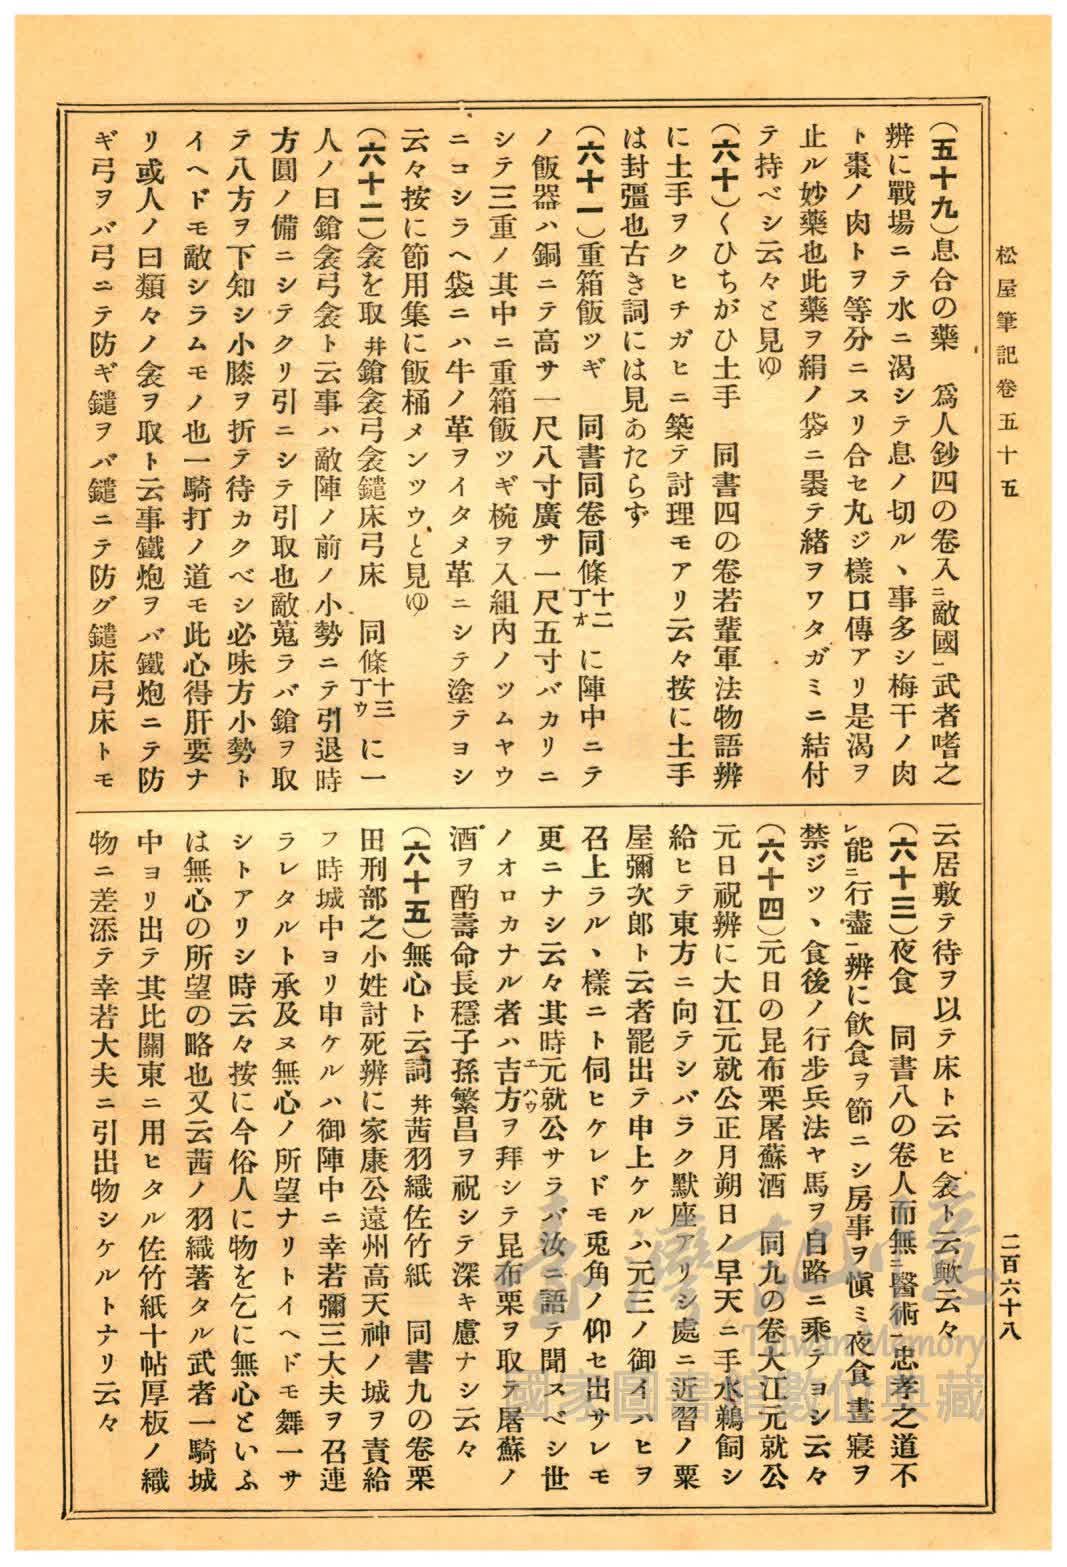 松屋筆記卷五十五
二百六十八
(五十九)息合の藥　爲人鈔四の卷入ニ敵國一武者嗜之
辨に戰場ニテ水ニ渴シテ息ノ切ル丶事多シ梅干ノ肉
ト棗ノ肉トヲ等分ニスリ合セ丸ジ樣口傳アリ是渴ヲ
止ル妙藥也此藥ヲ絹ノ袋ニ裹テ緒ヲワタガミニ結付
テ持ベシ云々と見ゆ
(六十)くひちがひ土手　同書四の卷若輩軍法物語辨
に土手ヲクヒチガヒニ築テ討理モアリ云々按に土手
は封彊也古き詞には見あたらず
(六十一)重箱飯ツギ　同書同卷同條十二丁オに陣中ニテ
ノ飯器ハ銅ニテ高サ一尺八寸廣サ一尺五寸バカリニ
シテ三重ノ其中ニ重箱飯ツギ椀ヲ入組內ノツムヤウ
ニコシラヘ袋ニハ牛ノ革ヲイタメ革ニシテ塗テヨシ
云々按に節用集に飯桶メンツウと見ゆ
(六十二)衾を取幷鎗衾弓衾鑓床弓床　同條十三丁ウに一
人ノ曰鎗衾弓衾ト云事ハ敵陣ノ前ノ小勢ニテ引退時
方圓ノ備ニシテクリ引ニシテ引取也敵蒐ラバ鎗ヲ取
テ八方ヲ下知シ小膝ヲ折テ待カクベシ必味方小勢ト
イヘドモ敵シラムモノ也一騎打ノ道モ此心得肝要ナ
リ或人ノ曰類々ノ衾ヲ取ト云事鐵炮ヲバ鐵炮ニテ防
ギ弓ヲバ弓ニテ防ギ鑓ヲバ鑓ニテ防グ鑓床弓床トモ
云居敷テ待ヲ以テ床ト云ヒ衾ト云歟云々
(六十三)夜食　同書八の卷人而無ニ醫術一忠孝之道不
レ能ニ行盡一辨に飮食ヲ節ニシ房事ヲ愼ミ夜食晝寢ヲ
禁ジツ丶食後ノ行步兵法ヤ馬ヲ自路ニ乘テヨシ云々
(六十四)元日の昆布栗屠蘇酒　同九の卷大江元就公
元日祝辨に大江元就公正月朔日ノ早天ニ手水鵜飼シ
給ヒテ東方ニ向テシバラク默座アリシ處ニ近習ノ粟
屋彌次郞ト云者罷出テ申上ケルハ元三ノ御イハヒヲ
召上ラル丶樣ニト伺ヒケレドモ兎角ノ仰セ出サレモ
更ニナシ云々其時元就公サラバ汝ニ語テ聞スベシ世
ノオロカナル者ハ吉方エハウヲ拜シテ昆布栗ヲ取テ屠蘇ノ
酒ヲ酌壽命長穩子孫繁昌ヲ祝シテ深キ慮ナシ云々
(六十五)無心ト云詞幷茜羽織佐竹紙　同書九の卷栗
田刑部之小姓討死辨に家康公遠州高天神ノ城ヲ責給
フ時城中ヨリ申ケルハ御陣中ニ幸若彌三大夫ヲ召連
ラレタルト承及ヌ無心ノ所望ナリトイヘドモ舞一サ
シトアリシ時云々按に今俗人に物を乞に無心といふ
は無心の所望の略也又云茜ノ羽織著タル武者一騎城
中ヨリ出テ其比關東ニ用ヒタル佐竹紙十帖厚板ノ織
物ニ差添テ幸若大夫ニ引出物シケルトナリ云々
臺灣記憶
Taiwan Memory
國家圖書館數位典藏